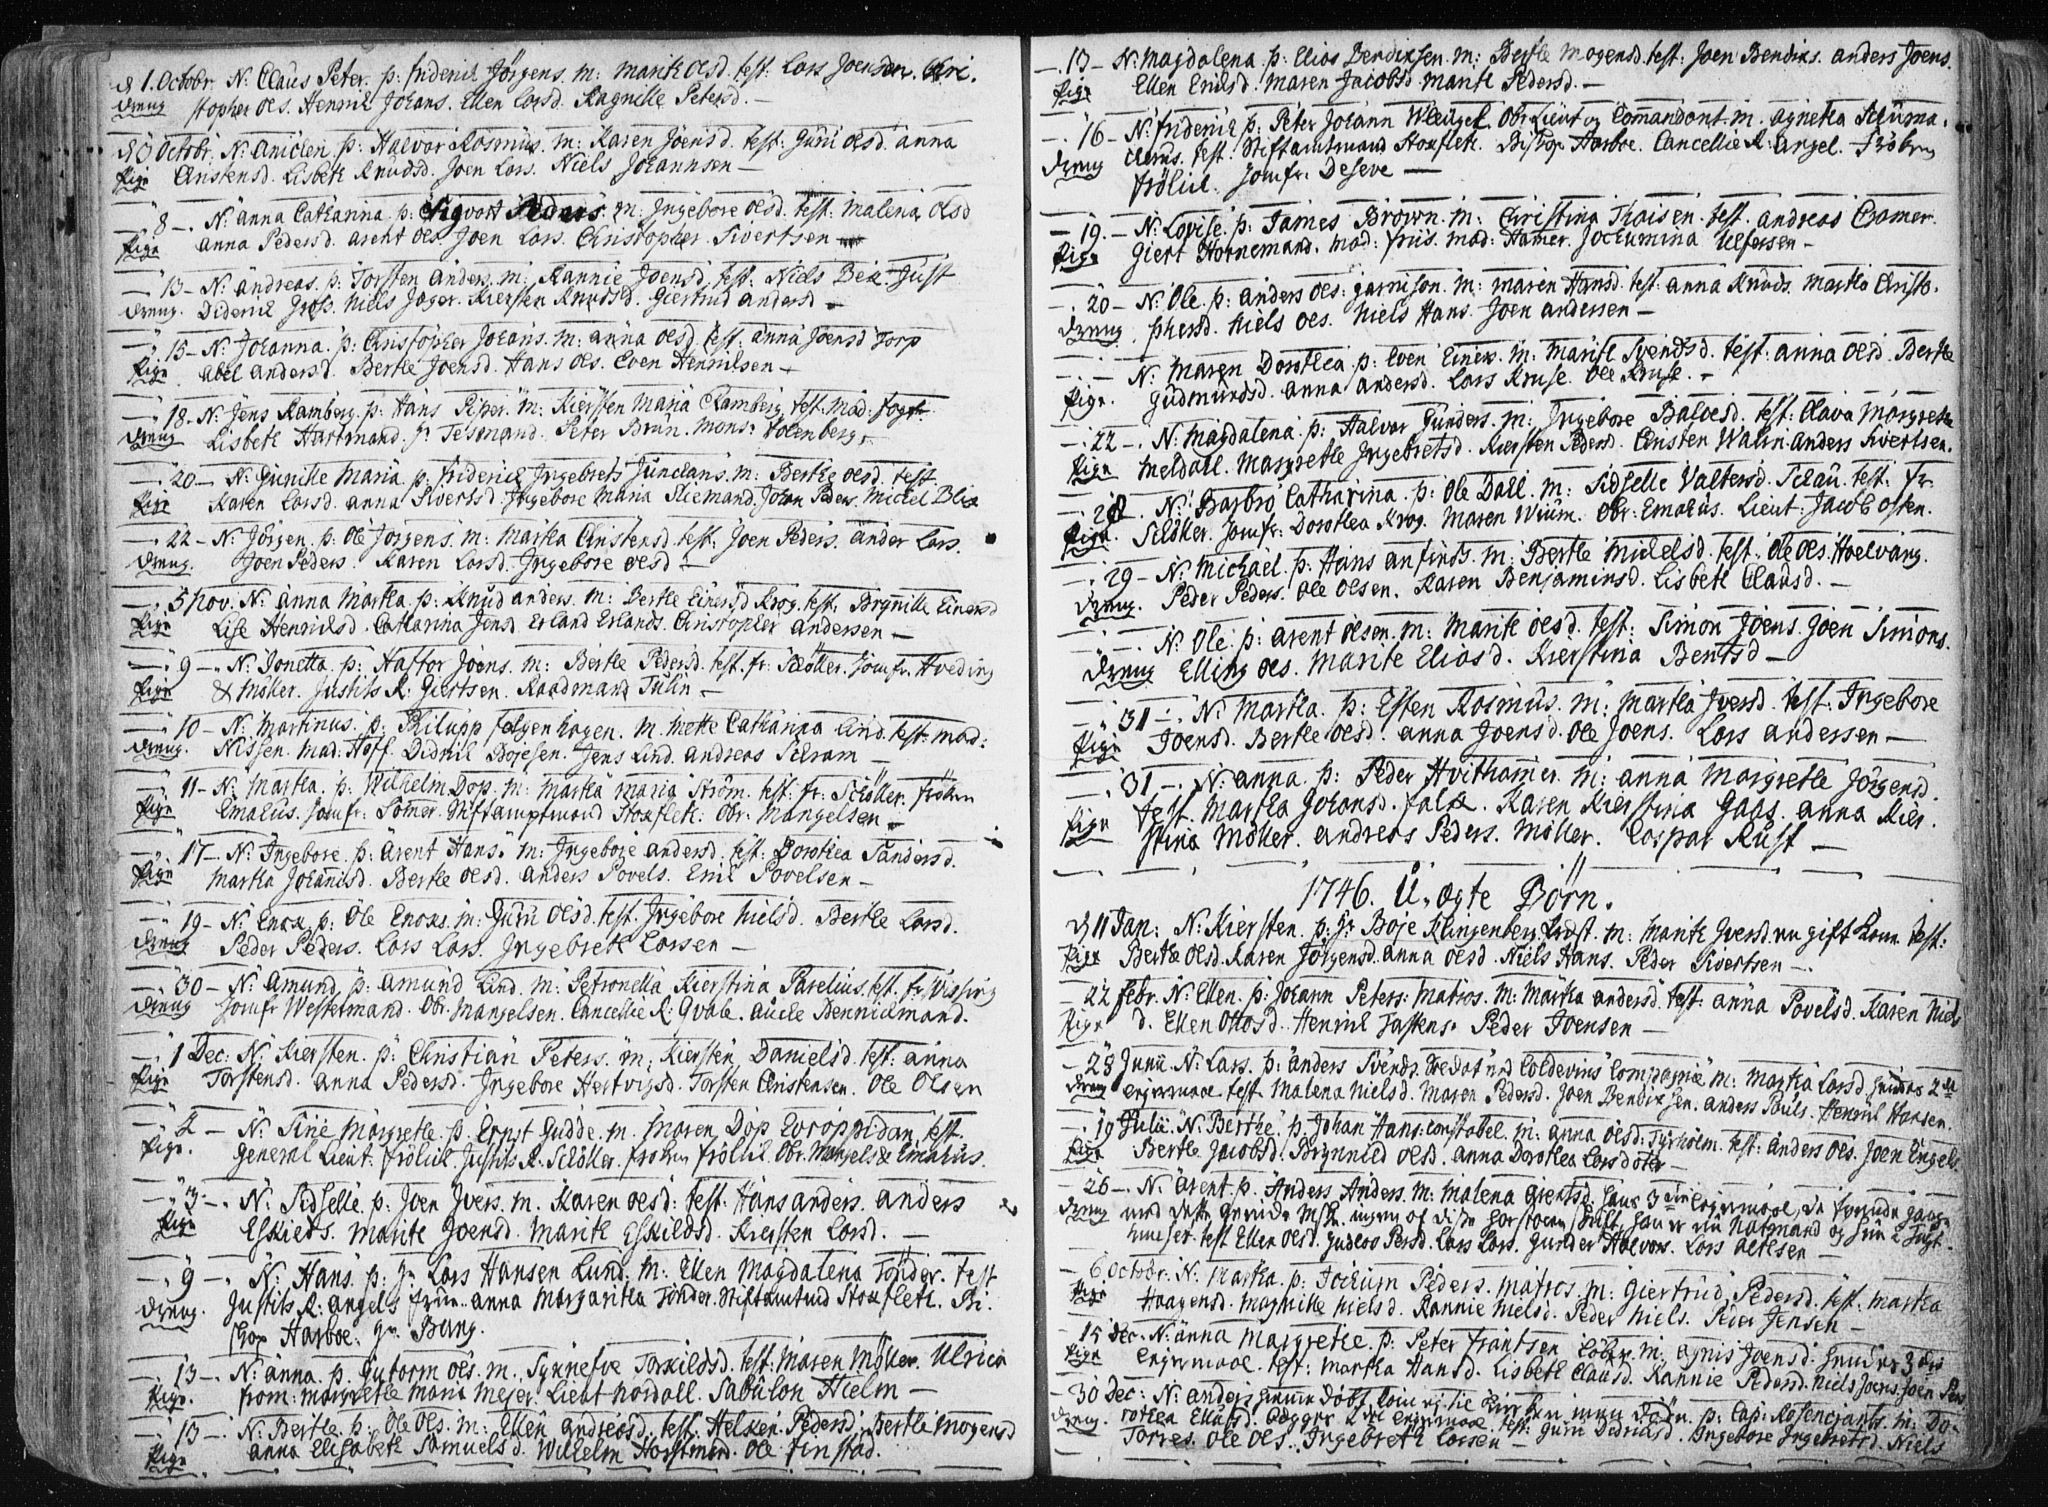 d 1. Octobr. N. Claus Peter. p: friderich Jörgens. m: marit olsd. test: Lars Joensen. Chri.
Dreng stopher ols. Henrich Johans. Ellen Larsd. Ragnille Petersd. —
d 3 Octobr. N. p: Halvor Rasmus. m: Karen Joensd. test: Guri olsd. anna
Pige Anstensd. Lisbeth Knudsd. Joen Lars. Niels Johannsen —
— 8 —. N: anna Catharina. p: Sigvart Peders. m: Ingebore olsd. test: malena olsd
Pige anna Pedersd. arent ols. Joen Lars. Christopher Sivertsen —
— 13 — N: andreas. p: Torsten anders. m: Rannie Joensd. test: Niels Bex. Just
Dreng. Diderich Niels Jæger. Kiersten Knudsd. Giertrud andersd —
— 15 — N: Johanna. p: Christopher Johans. m: anna olsd. test: anna Joensd Torp
Pige abel andersd. Berthe Joensd. Hans ols. Even Henrichsen —
— 18 — N: Jens Ramberg. p: Hans Piper. m: Kiersten Maria Ramberg. test: mad: fogh.
Dreng Lisbeth Hartmand. hr Tesmand. Peter Brun. Mons: Holenberg.
— 20 — N: Gunille Maria. p: friderich Ingebrets m: Berthe olsd. test
Pige Karen Larsd. anna Sivertsd. Ingebore Maria Johan Peders. Michel Blix
— 22 — N: Jörgen. p: Ole Jörgens. m: Martha Christensd. test: Joen Peders. ander Lars.
Dreng. Joen Peders. Karen Larsd. Ingebore olsd —
— 5 Nov. N: anna Martha. p: Knud anders. m: Berthe Einersd Krog. test: Brynille Einersd
Pige Lise Henrichsd. Catharina Jensd. Erland Erlands. Christopher andersen —
— 9 —. N: Jonetta. p: Hastor Joens. m: Berthe Pedersd. test: fr: Schöller. Jomfr: Hveding
Pige & Möller. Justits R: Raadmand Tulin —
— 10 — N: Martinus. p: Philupp felgenhagen. m. Mette Catharina Lind. test: mad:
Dreng. Nissen. mad: Hoff. Didrich Bojesen. Jens Lind. andreas Schram —
— 11 — N: Martha. p: Wilhelm Dop. m: Martha Maria Ström. test: fr: Schöller. fröken
Pige Emahus. Jomfr: Sömer. Stiftamptmand Stoxfleth. Obr: Mangelsen —
— 17 — N: Ingebore. p: Arent Hans. m: Ingeborg andersd. test: Dorothea Sandersd.
Pige Martha Johanisd. Berthe olsd. anders Povels. Emi Povelsen —
— 19 — N: Enox. p: Ole Enoxs. m: Guru olsd. test: Ingebore Nielsd. Berthe Larsd.
Dreng Peder Peders. Lars Lars. Ingebreth Larsen —
— 30 — N: Amund p: amund Lind. m: Petronella Kierstina Parelius. test: fr: Wissing
Dreng Jomfr Westermand. Obr. Mangelsen. Cancellie R: Qvale.
— 1 Dec: N: Kiersten. p: Christian Peters. m: Kiersten Danielsd. test: anna
Pige Torstensd. anna Pedersd. Ingebore Hertvigsd. Torsten Christensen. Ole Olsen
— 2 — N: Sine Margrethe. p: Ernst Gudde. m. Maren Dop Evroppidan. test.
Pige. General Lieut: frölich. Justits R: Schöller. fröken frölich Obr. Mangels & Emahus.
— 3 —. N: Sidselle. p: Joen Jvers. m. Karen olsd: test: Hans anders. anders
Pige Eskiels. Marite Joensd. Marit Eskildsd. Kiersten Larsd. —
— 9 —. N: Hans. p: hr Lars Hansen Lund. m. Ellen Magdalena Tönder. test
Dreng. Justits R: angels frue. anna Margaritha Tönder. Stiftamtmd Stoxfleth. Bi.
skop Harboe. hr Bang.
— 13 —. N: anna. p: Gutorm ols. m. Synnefve Torkildsd. test: Maren Möller. Ulrica
Pige. from: Margrethe Maria Mejer Lieut Nordall. Sabulon Hielm —
— 13 — N: Berthe. p: Ole Ols. m: Ellen andreasd. test: Helken Pedersd. Berthe Mogensd
Pige anna Elisabeth Samuelsd. Wilhelm Horstman. Ole finstad.
— 13 — N: Magdalena. p: Elias Bendixsen. m: Berthe Mogensd. test: Joen Bendixs. anders Joens.
Pige Ellen Erichsd. Maren Jacobsd Marit Pedersd. —
— 16 — N: friderich p: Peter Johann Obr Lieut og Commandant. m. agnetha
Dreng test. Stiftamtmand Stoxfleth. Biskop Harboe. Cancellie R. angel. fröken
frölich. Jomfr: Deseve —
— 19. — N: Lovise. p: James Brown. m: Christina Thaisen. test. andreas Cramer.
Pige Giert Hornemand. mad: friis. mad: Hamer. Jochumina Ulfersen —
— 20 — N: Ole. p: anders ols: garnison. m: maren Hansd. test: anna Knuds. Martha Christo.
Dreng phersd. Niels ols. Niels Hans. Joen andersen —
— — N: Maren Dorothea. p: Even Einers. m: Marit Svendsd. test: anna olsd. Berthe
Pige. Gudmundsd. anna andersd. Lars Kruse. Ole Kruse. —
— 22 —. N: Magdalena. p: Halvor Gunders. m: Ingebore test. Clava Margrethe
Pige Meldall. Margrethe Ingebretsd. Kiersten Pedersd. Ansten Walin. Anders Sivertsen.
— 28. N: Barbro Catharina. p: Ole Dall. m: Sidselle Valtersd. Schau. test: fr.
Pige Schöller. Jomfr: Dorothea Krog. Maren Wium. Obr: Emahus. Lieut: Jacob osten.
— 29 — N: Michael. p: Hans anfinds. m: Berthe Michelsd. test: Ole ols. Hoelvang.
Dreng. Peder Peders. Ole Olsen. Karen Benjaminsd. Lisbeth Clausd. —
— — N: Ole. p: arent olsen. m: Marit olsd. test: Simon Joens. Joen Simons.
Dreng Elling ols. Marite Eliasd. Kierstina Bentsd —
— 31 —. N: Martha. p: Esten Rasmus. m: Martha Jversd. test: Ingebore
Pige Joensd. Berthe olsd. anna Joensd. Ole Joens. Lars andersen —
— 31 —. N: anna. p: Peder Hvithamer. m: anna Margrethe Jörgensd.
Pige test. Martha Johansd. falk. Karen Kierstina Gaas. anna Kier.
stina Möller. andreas Peders. Möller. Caspar Rust —
1746. U-ægte Börn.
d 11 Jan: N: Kiersten. p: hr Boje Klingenberg Prost. m: Marit Jversd. nu gift Kone. test:
Pige Berthe olsd. Karen Jörgensd. anna olsd. Niels Hans. Peder Sivertsen —.
— 22 febr. N: Ellen. p: Johann Peters: Matros. m: Martha andersd. test: anna Povelsd. Karen Niels
Pige d. Ellen Ottosd. Henrich Peder Joensen —
— 28 Junii. N: Lars. p: anders Svends. Coldevins Compagnie m: Martha Larsd. hendes 2den
Dreng leiermaal. test. Malena Nielsd. Maren Pedersd. Joen Bendixsen. anders Pouls. Henrich Hansen.
— 19 Julii. N: Berthe. p: Johan Hans: Constabel. m: anna olsd: Tyrholm. test: anders ols. Joen Engels
Pige Berthe Jacobsd. Brynnild olsd. anna Dorothea Larsdoter —
— 26 —. N: Arent. p: Anders Anders. m: Malena arentsd. hans 3die leiermaal,
Dreng Natmand og hun
test Ellen olsd. Gudlov Persd. Lars Lars. Gunder Halvors. Lars
— 6 Octobr. N: Martha. p: Jochum Peders. Matros. m: Giertrud Pedersd. test. Martha
Pige Haagensd. Magnille Nielsd. Rannie Nielsd. Peder Niels. Peder Jensen —
— 15 Dec. N: anna Margrethe. p: Peter frantsen m. Agnis Joensd. hendes 3die
Pige leiermaal. test: Martha Hansd. Lisbeth Clausd. Rannie Pedersd. Niels Joens. Joen Pers
— 30 Dec: N: anders hiemme döbt p: Cap: Rosencrants. m: Do-
Dreng. rothea leiermaal. test: Guru Didrichsd. Ingebore Ingebretsd. Niels
Torres. Ole Ols. Ingebreth Larsen —